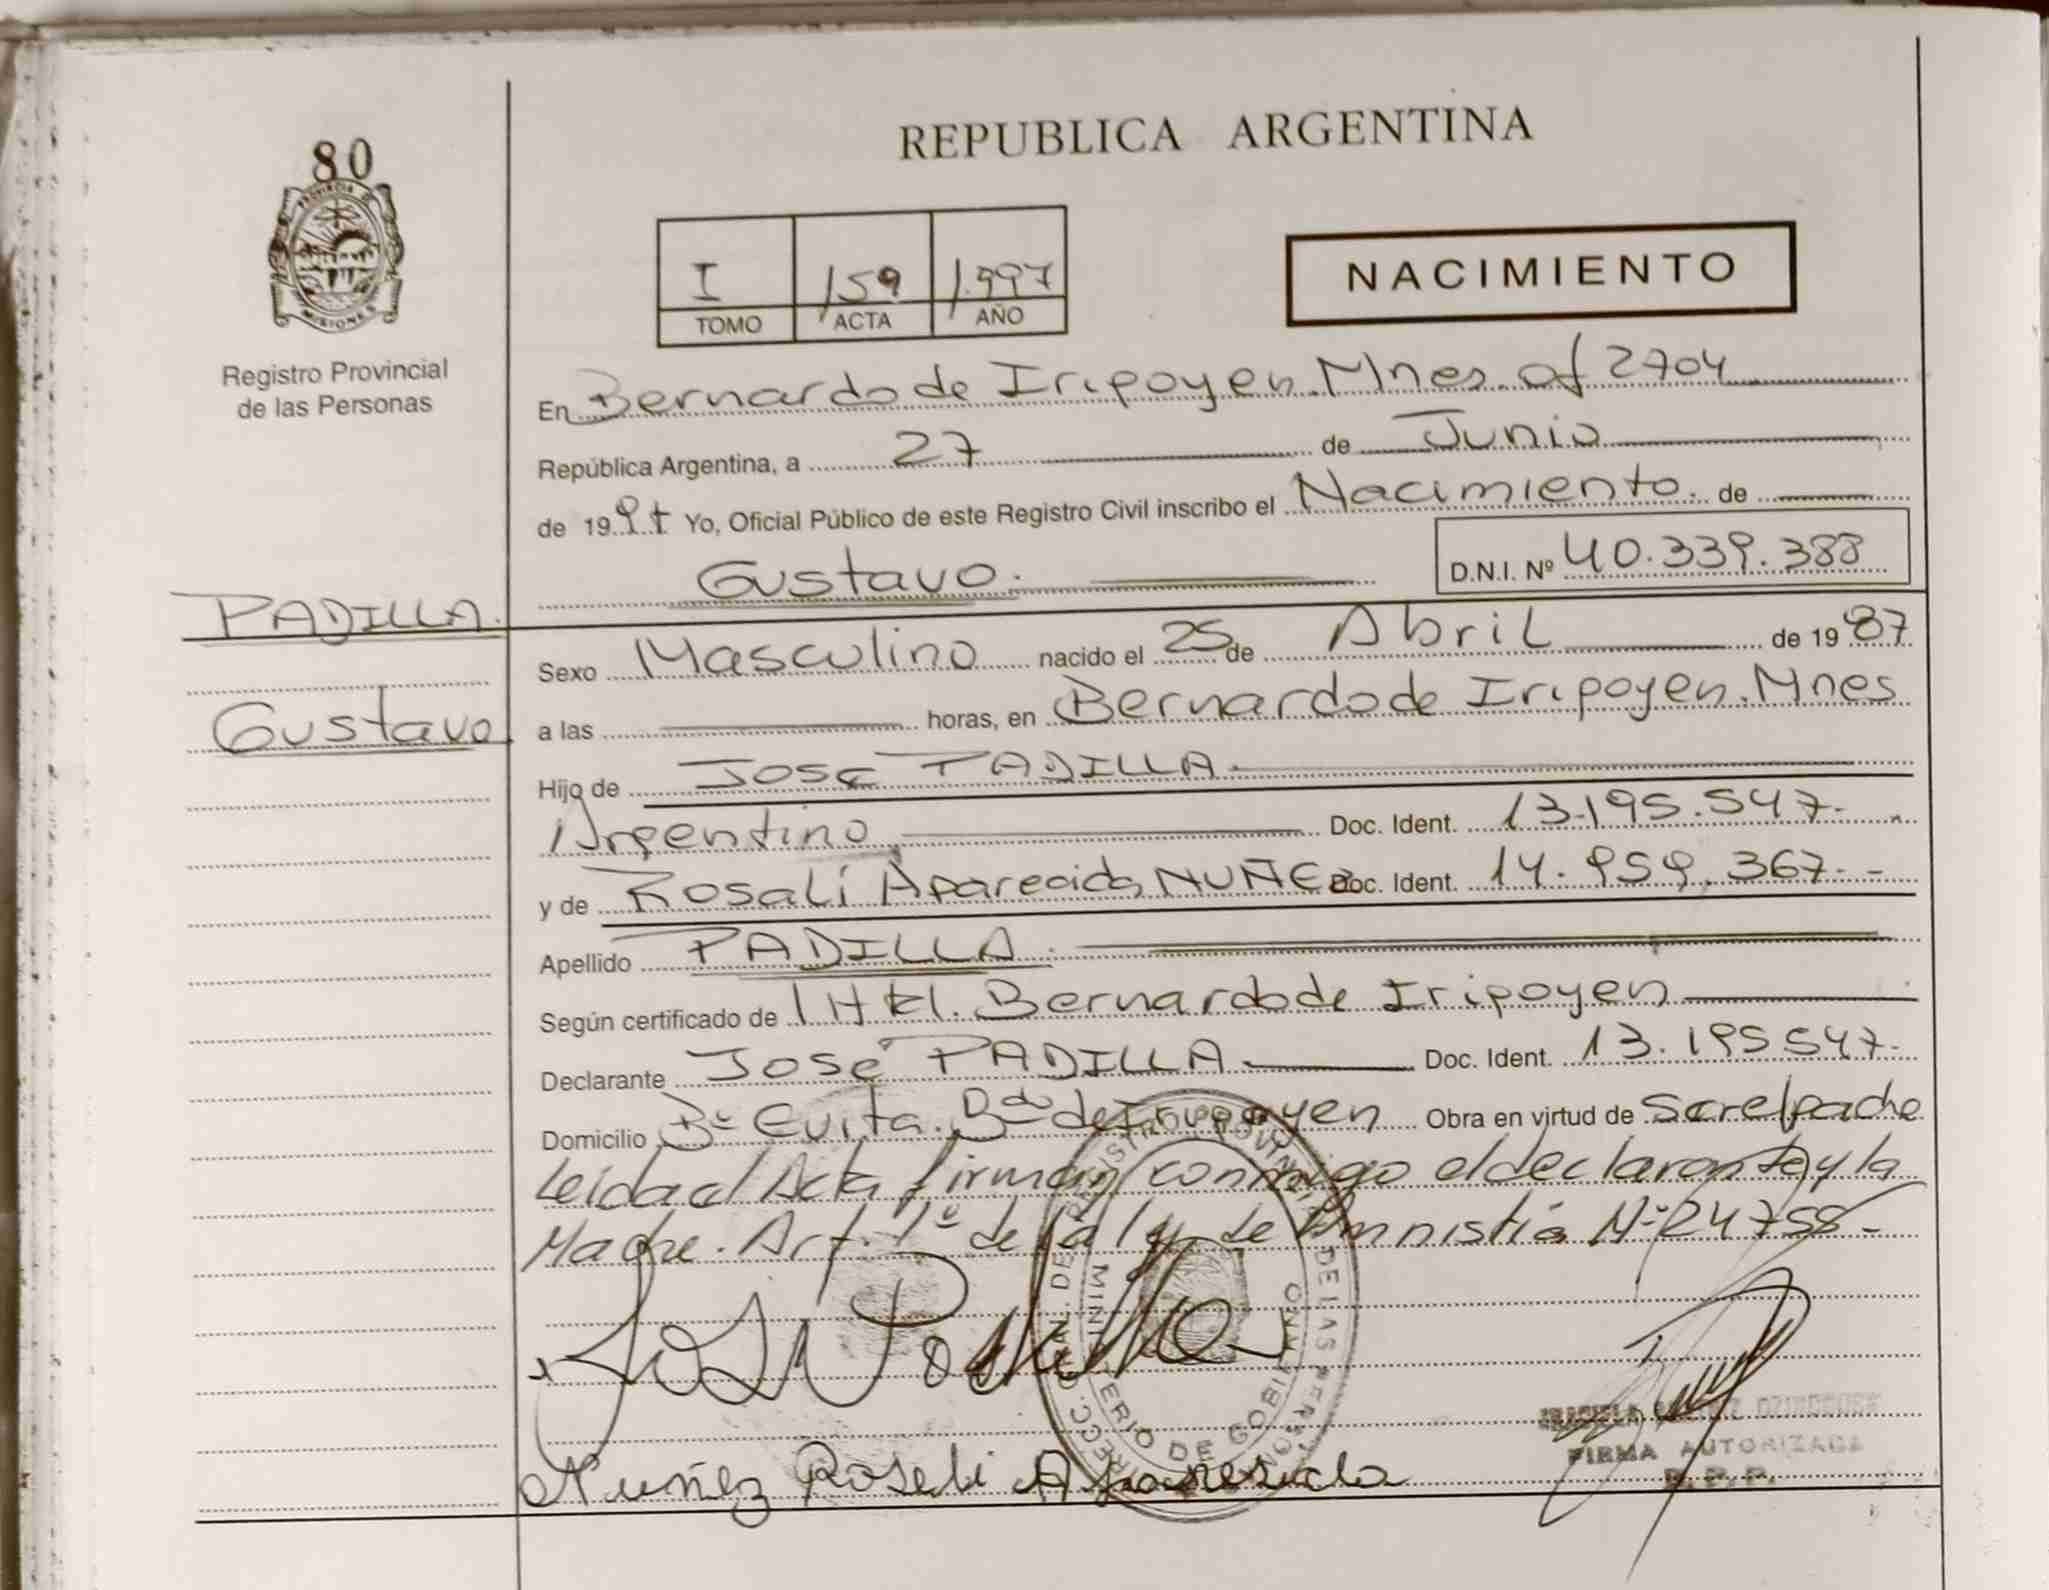 80
PROVINCIA DE
MISIONES
Registro Provincial
de las Personas
REPUBLICA ARGENTINA
I 159 1.997
TOMO ACTA AÑO
NACIMIENTO
En Bernardo de Iripoyen. Mnes. of 2704
República Argentina, a 27 de Junio
de 1997 Yo, Oficial Público de este Registro Civil inscribo el Nacimiento. de
Gustavo. D.N.I. Nº 40.339.388
PADILLA.
Gustavo
Sexo Masculino nacido el 25 de Abril de 1987
a las horas, en Bernardo de Iripoyen. Mnes
Hijo de José PADILLA.
Argentino Doc. Ident. 13.195.547.-
y de Rosali Aparecida NUÑEZ Doc. Ident. 14.959.367.-
Apellido PADILLA.
Según certificado de Htal. Bernardo de Iripoyen
Declarante José PADILLA Doc. Ident. 13.195547.-
Domicilio Bº Evita. Bdo de Irupoyen Obra en virtud de
Leida el Acta firman conmigo el declarante y la
Madre. Art. 1º de la ley de Amnistía Nº 24755-
José Padilla
Nuñez Roseli Aparesida
REGISTRO PROVINCIAL DE LAS PERSONAS
MINISTERIO DE GOBIERNO
FIRMA AUTORIZADA
R.P.P.